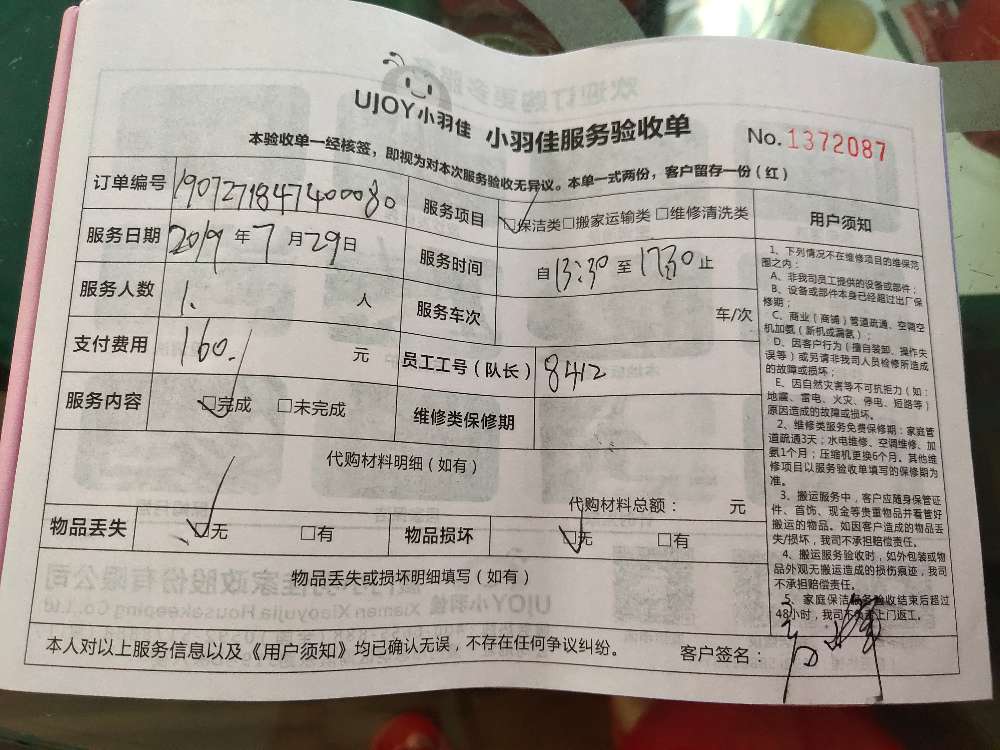 UJOY小羽佳 小羽佳服务验收单
No.1372087
本验收单一经核签，即视为对本次服务验收无异议。本单一式两份，客户留存一份（红）
订单编号 1907271847400080 服务项目 □保洁类□搬家运输类□维修清洗类
服务日期 2019年7月29日 服务时间 自13:30至1730止
服务人数 1. 人 服务车次 车/次
支付费用 160. 元 员工工号（队长） 8412
服务内容 □完成 □未完成 维修类保修期
代购材料明细（如有）
代购材料总额： 元
物品丢失 □无 □有 物品损坏 □无 □有
物品丢失或损坏明细填写（如有）
本人对以上服务信息以及《用户须知》均已确认无误，不存在任何争议纠纷。 客户签名：
用户须知
1、下列情况不在维修项目的维保范
围之内：
A、非我司员工提供的设备或部件；
B、设备或部件本身已经超过出厂保
修期；
C、商业（商铺）管道疏通、空调空
机加氨（新机或漏氨）；
D、因客户行为（擅自装卸、操作失
误等）或另请非我司人员检修所造成
的故障或损坏；
E、因自然灾害等不可抗拒力（如：
地震、雷电、火灾、停电、短路等）
原因造成的故障或损坏。
2、维修类服务免费保修期：家庭管
道疏通3天；水电维修、空调维修、加
氨1个月；压缩机更换6个月。其他维
修项目以服务验收单填写的保修期为
准。
3、搬运服务中，客户应随身保管证
件、首饰、现金等贵重物品并看管好
搬运的物品。如因客户造成的物品丢
失/损坏，我司不承担赔偿责任。
4、搬运服务验收时，如外包装或物
品外观无搬运造成的损伤痕迹，我司
不承担赔偿责任。
5、家庭保洁服务验收结束后超过
48小时，我司不负责上门返工。